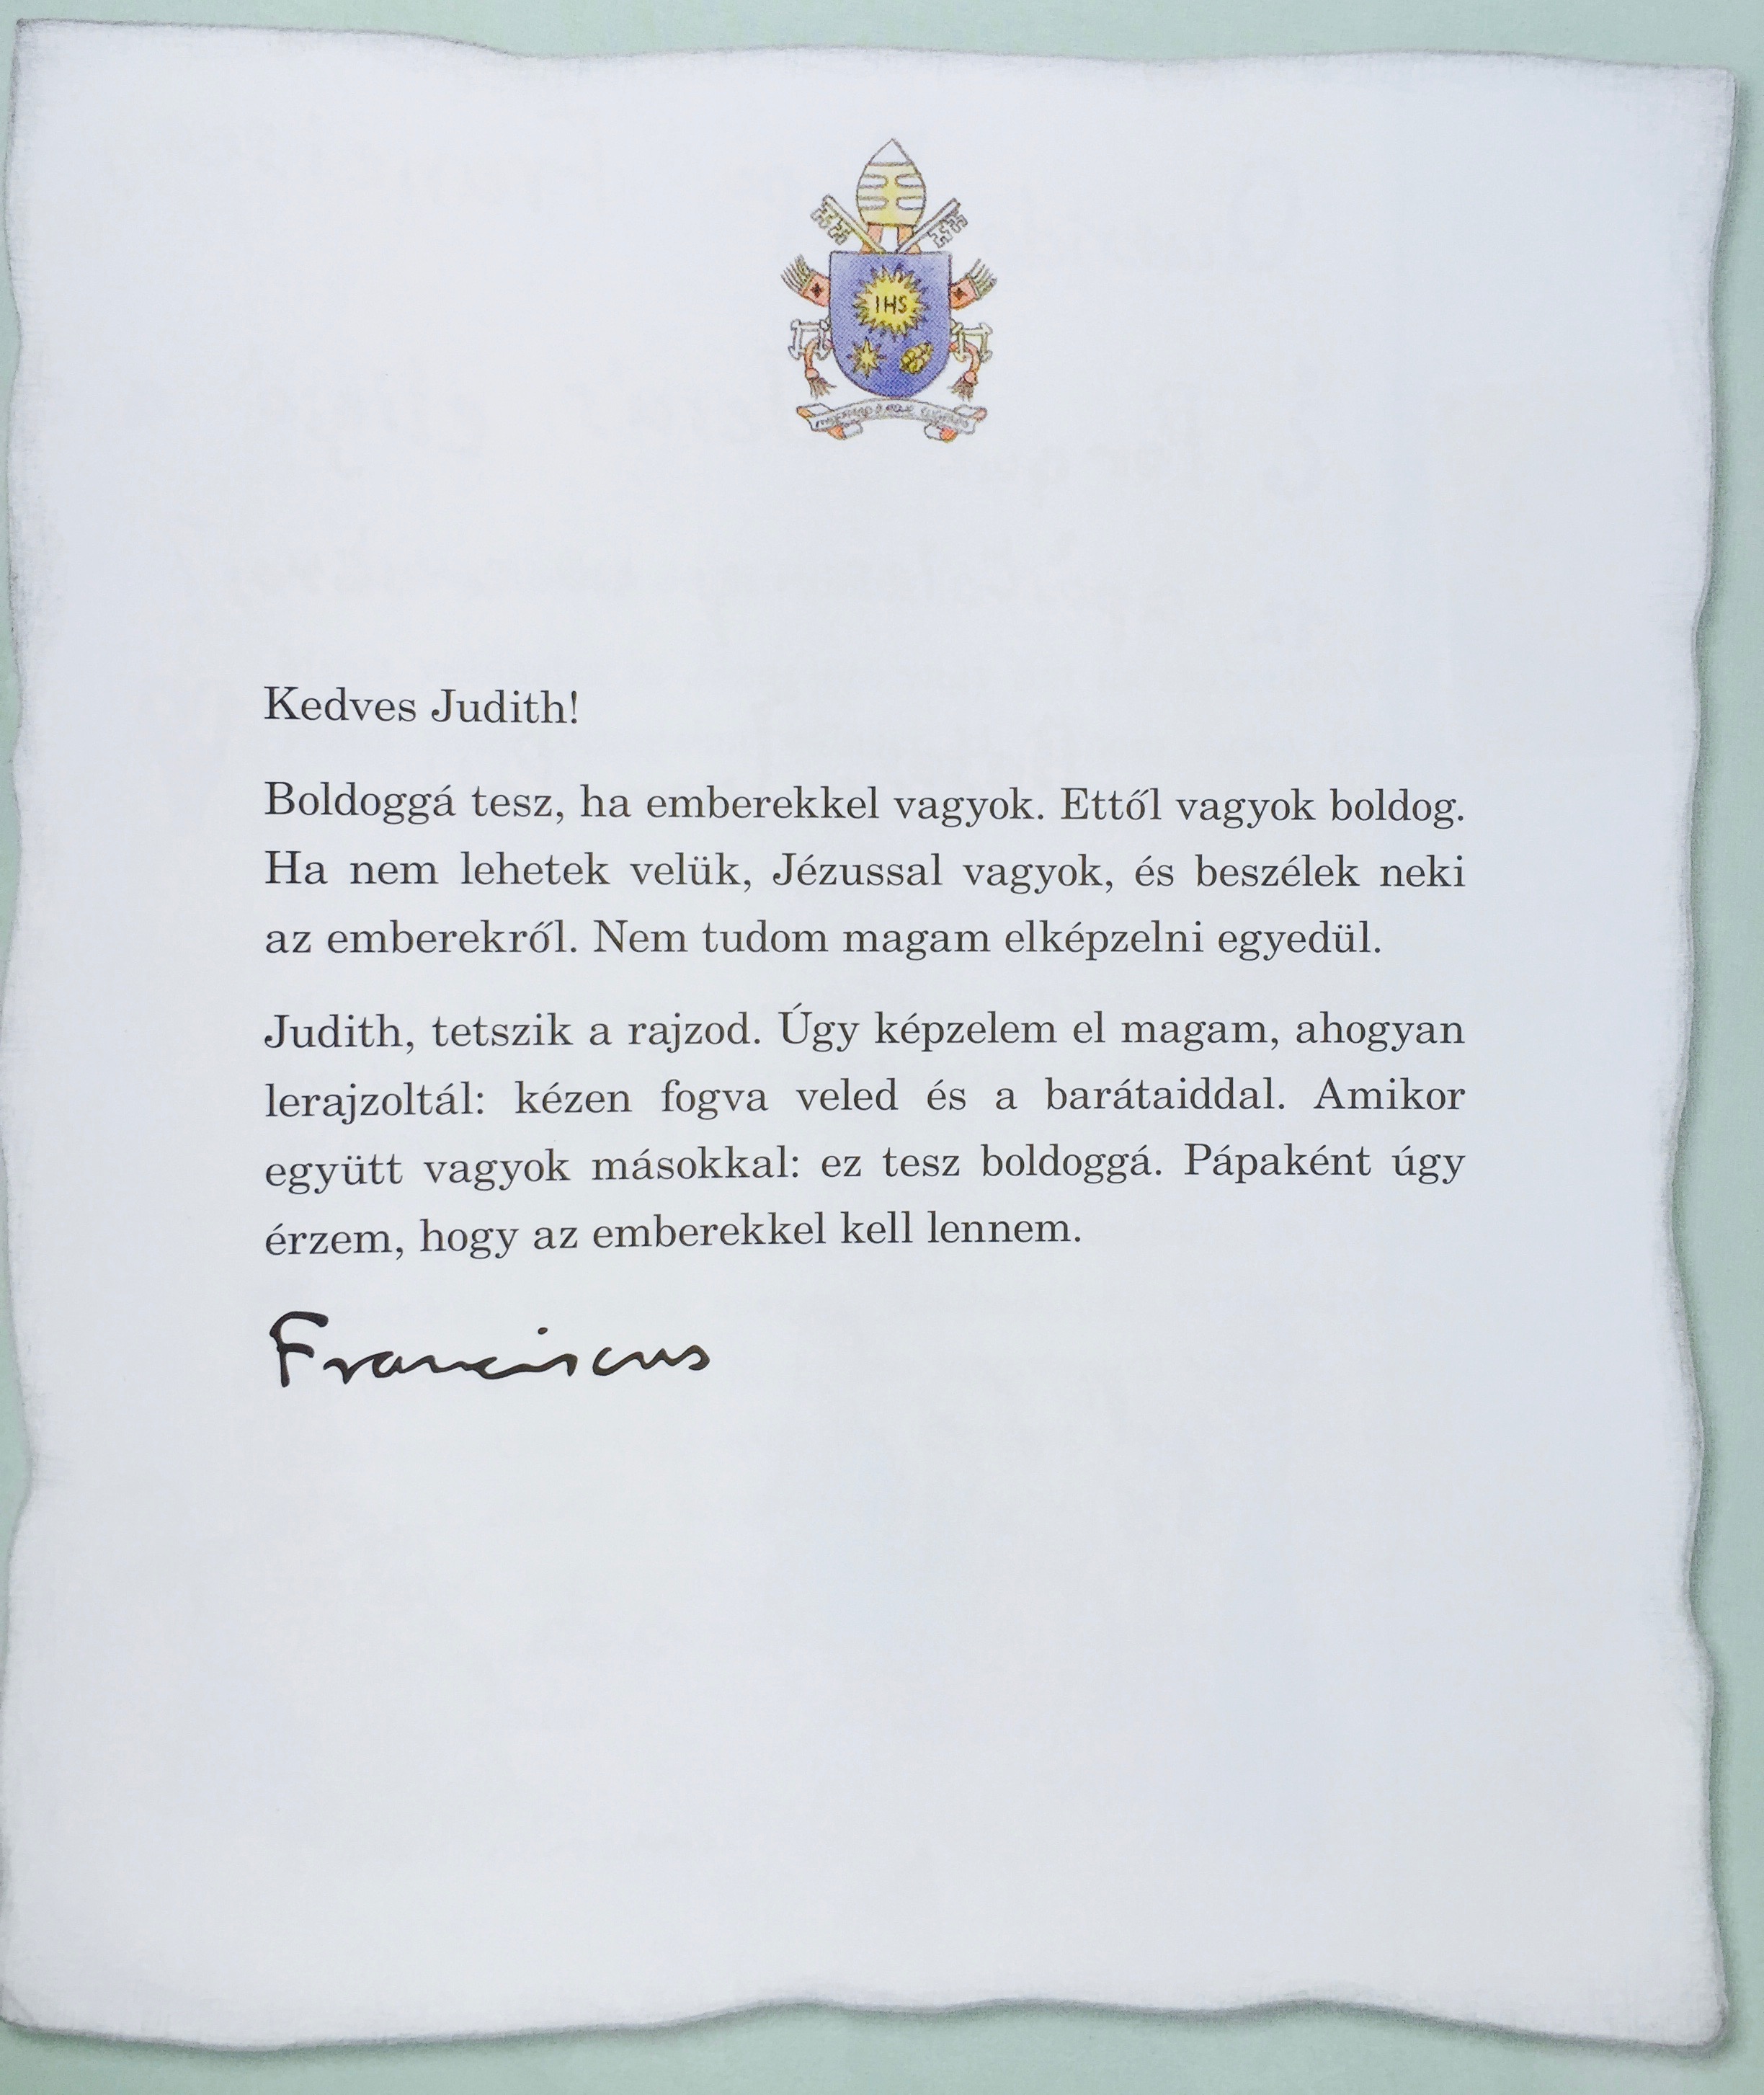 IHS
Kedves Judith!
Boldoggá tesz, ha emberekkel vagyok. Ettől vagyok boldog.
Ha nem lehetek velük, Jézussal vagyok, és beszélek neki
az emberekről. Nem tudom magam elképzelni egyedül.
Judith, tetszik a rajzod. Úgy képzelem el magam, ahogyan
lerajzoltál: kézen fogva veled és a barátaiddal. Amikor
együtt vagyok másokkal: ez tesz boldoggá. Pápaként úgy
érzem, hogy az emberekkel kell lennem.
Franciscus